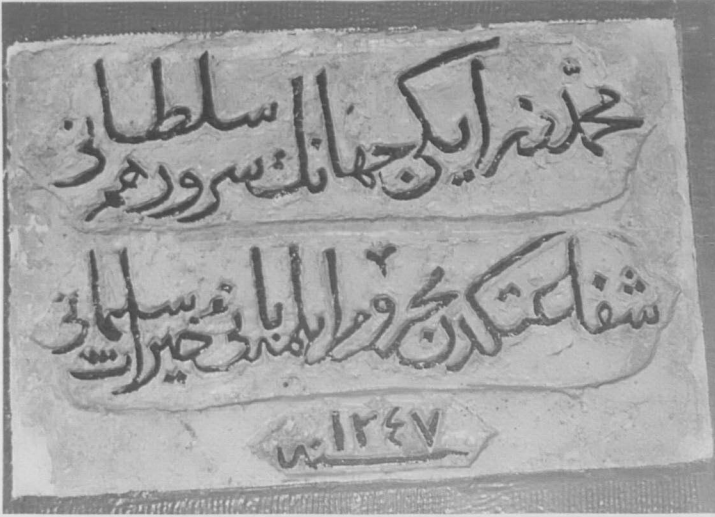 محمددر ایکی جهانك سرور هم سلطانی
شفاعتكدن محروم ایلمه بانئ خیرات سلیمانی
سنه ١٢٤٧